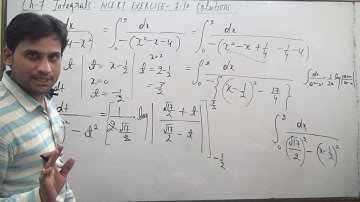 Ch-7 Integrals: NCERT EXERCISE-7.10 Solutions
= ∫₀² dx / -(x²-x-4) = ∫₀² dx / -(x²-x+1/4-1/4-4)
t = x-1/2
x=2
t = 2-1/2
= 3/2
x=0
t = -1/2
= ∫₀² dx / -{(x-1/2)² - 17/4}
dt
- t²
= [ 1 / 2 √17/2 log | √17/2 + t / √17/2 - t | ] -1/2
∫₀² dx / (√17/2)² - (x-1/2)²